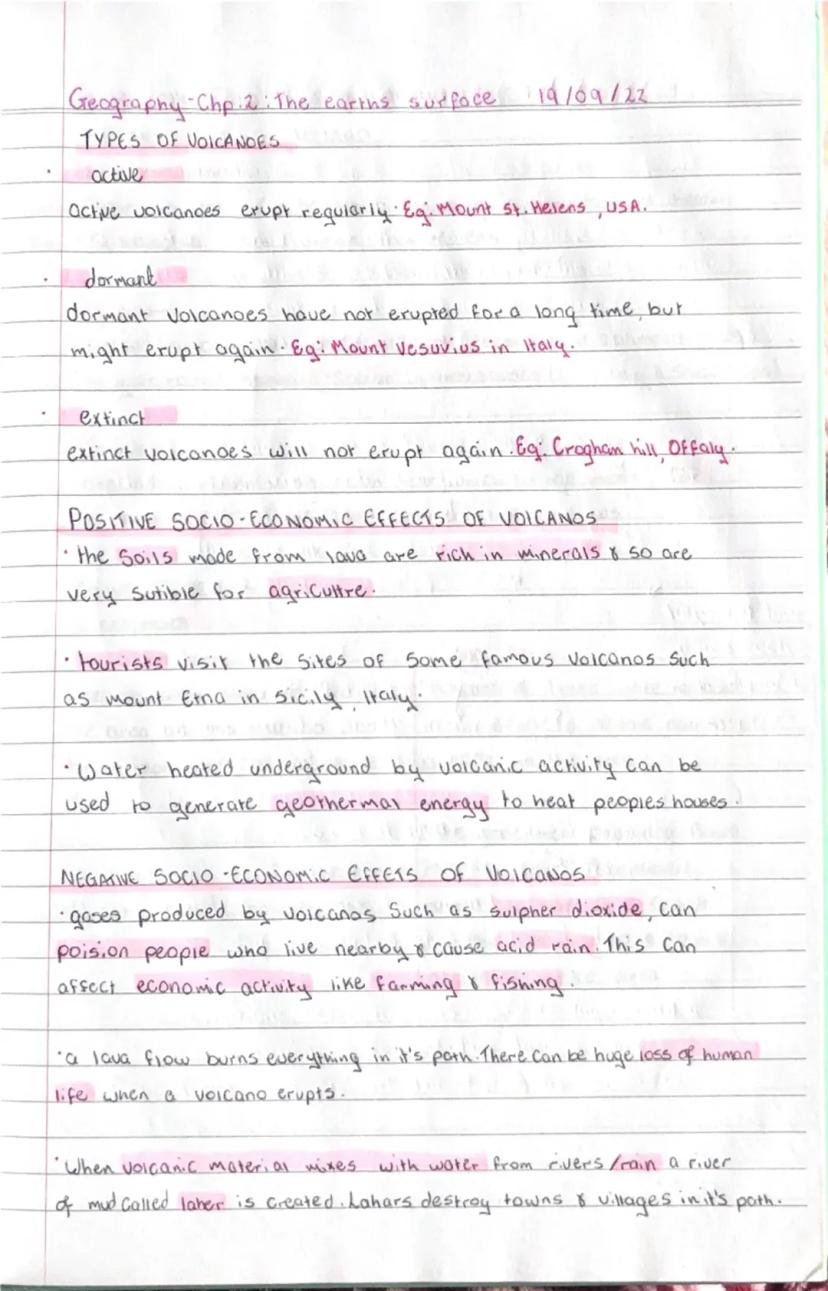 Geography-Chp.2: The earths surface 19/09/22
TYPES OF VOLCANOES
· active
active volcanoes erupt regularly. Eg: Mount St. Helens, USA.
· dormant
dormant volcanoes have not erupted for a long time, but
might erupt again. Eg: Mount Vesuvius in Italy.
· extinct
extinct volcanoes will not erupt again. Eg: Croghan hill, Offaly.
POSITIVE SOCIO-ECONOMIC EFFECTS OF VOLCANOS
· the soils made from lava are rich in minerals & so are
very sutible for agricultre.
· tourists visit the sites of some famous volcanos such
as mount Etna in Sicily, Italy
· Water heated underground by volcanic activity can be
used to generate geothermal energy to heat peoples houses.
NEGATIVE SOCIO-ECONOMIC EFFECTS OF VOLCANOS
· gases produced by volcanos such as sulpher dioxide, can
poision people who live nearby & cause acid rain. This can
affect economic activity like farming & fishing.
· a lava flow burns everything in it's path. There can be huge loss of human
life when a volcano erupts.
· When volcanic material mixes with water from rivers/rain a river
of mud called laher is created. Lahars destroy towns & villages in it's path.